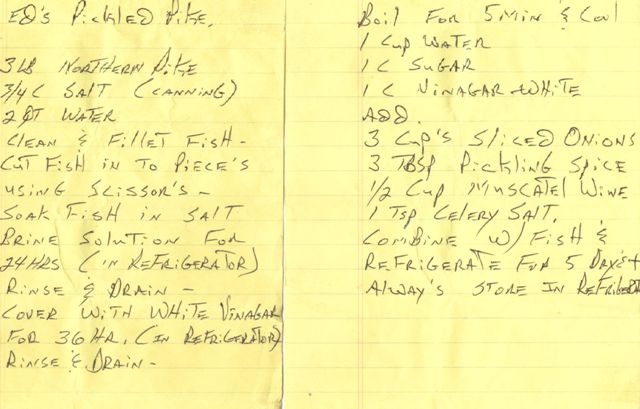 ED's Pickled Pike.
3 LB NORTHERN Pike
3/4 C SALT (CANNING)
2 QT WATER
CLEAN & FILLET FISH -
CUT FISH IN TO PIECE'S
USING SCISSOR'S -
SOAK FISH IN SALT
BRINE SOLUTION FOR
24 HRS (IN REFRIGERATOR)
RINSE & DRAIN -
COVER WITH WHITE VINAGAR
FOR 36 HR, (IN REFRIGERATOR)
RINSE & DRAIN -
Boil FOR 5 MIN & Cool
1 Cup WATER
1 C SUGAR
1 C VINAGAR - WHITE
ADD.
3 Cup's SLICED ONIONS
3 TBSP PICKLING SPICE
1/2 Cup MUSCATEL WINE
1 TSP CELERY SALT.
COMBINE W/ FISH &
REFRIGERATE FUR 5 DAY'S +
ALWAY'S STORE IN REFRIGERATOR